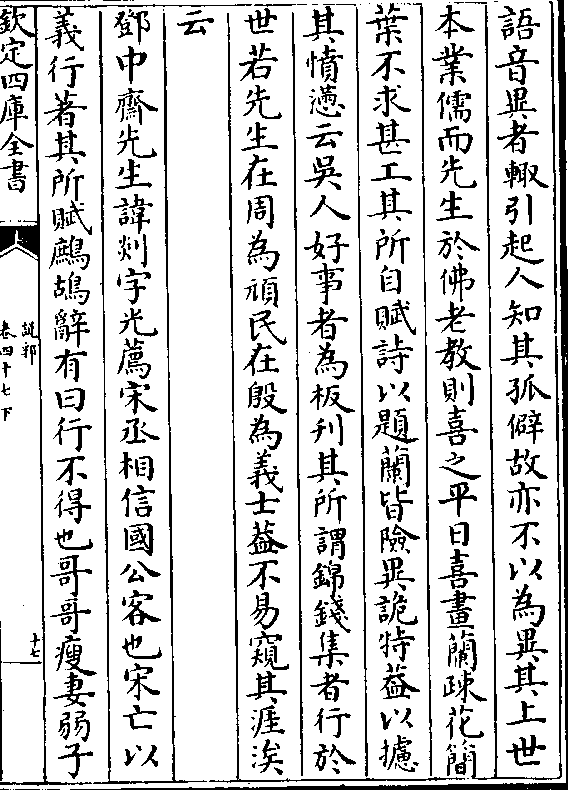 語音異者輙引起人知其孤僻故亦不以為異其上世
本業儒而先生於佛老教則喜之平日喜畫蘭疎花簡
葉不求甚工其所自賦詩以題蘭皆險異詭特葢以攄
其憤懣云吳人好事者為板刋其所謂錦錢集者行於
世若先生在周為頑民在殷為義士葢不易窺其涯涘
云
鄧中齋先生諱剡字光薦宋丞相信國公客也宋亡以
義行著其所賦鷓鴣辭有曰行不得也哥哥瘦妻弱子
欽定四庫全書
說郛
卷四十七下
十七